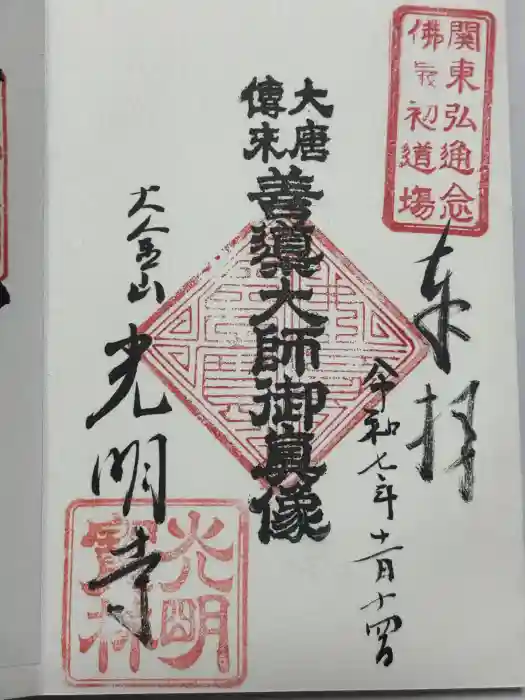 關東弘通念
佛㝡初道場
奉拝
令和七年十一月十四日
大唐
傳来
善導大師御真像
大金山
光明寺
光明
寶林